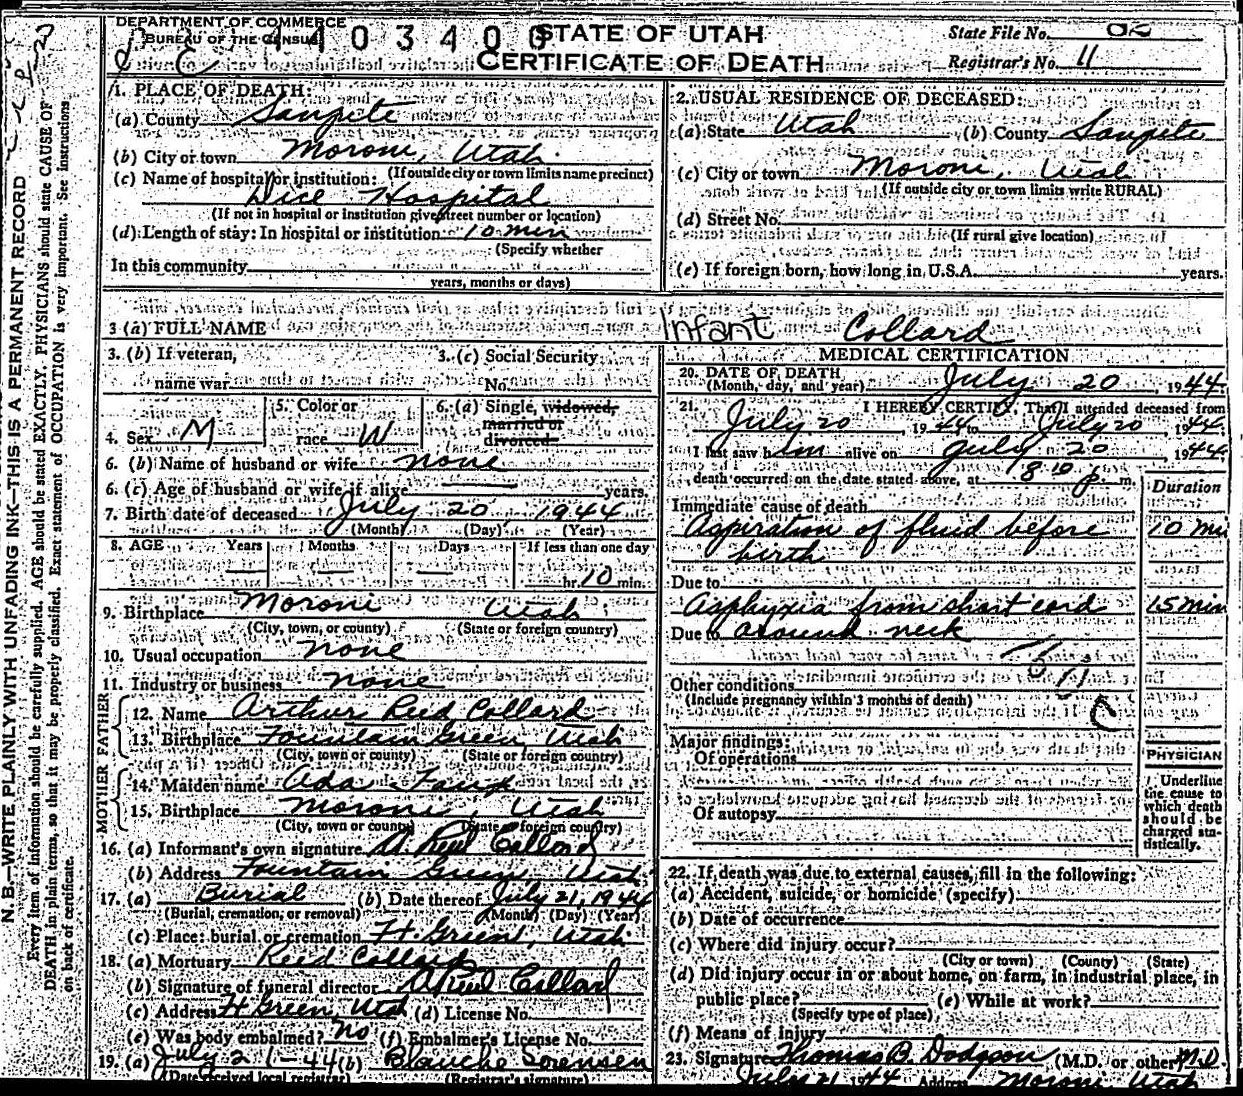 DEPARTMENT OF COMMERCE
BUREAU OF THE CENSUS
STATE OF UTAH
CERTIFICATE OF DEATH
State File No.
Registrar's No. 11
1. PLACE OF DEATH:
(a) County Sanpete
(b) City or town Moroni, Utah
(If outside city or town limits name precinct)
(c) Name of hospital or institution:
Dice Hospital
(If not in hospital or institution give street number or location)
(d) Length of stay: In hospital or institution 10 min
(Specify whether
In this community
years, months or days)
2. USUAL RESIDENCE OF DECEASED:
(a) State Utah (b) County Sanpete
(c) City or town Moroni, Utah
(If outside city or town limits write RURAL)
(d) Street No.
(If rural give location)
(e) If foreign born, how long in U.S.A. years.
3 (a) FULL NAME Infant Collard
3. (b) If veteran, name war
3. (c) Social Security No.
4. Sex M
5. Color or race W
6. (a) Single, widowed, married or divorced
6. (b) Name of husband or wife none
6. (c) Age of husband or wife if alive years
7. Birth date of deceased July 20 1944
(Month) (Day) (Year)
8. AGE Years Months Days If less than one day
hr. 10 min.
9. Birthplace Moroni Utah
(City, town, or county) (State or foreign country)
10. Usual occupation none
11. Industry or business none
FATHER
12. Name Arthur Reed Collard
13. Birthplace Fountain Green, Utah
(City, town or county) (State or foreign country)
MOTHER
14. Maiden name Ada
15. Birthplace Moroni, Utah
(City, town or county) (State or foreign country)
16. (a) Informant's own signature A. Reed Collard
(b) Address Fountain Green Utah
17. (a) Burial (b) Date thereof July 21, 1944
(Burial, cremation, or removal) (Month) (Day) (Year)
(c) Place: burial or cremation Ft Green, Utah
18. (a) Mortuary Reed Collard
(b) Signature of funeral director A Reed Collard
(c) Address Ft Green, Utah (d) License No.
(e) Was body embalmed? No (f) Embalmer's License No.
19. (a) July 21-44 (b) Blanche Sorensen
(Date received local registrar) (Registrar's signature)
MEDICAL CERTIFICATION
20. DATE OF DEATH July 20, 1944
(Month, day, and year)
21. I HEREBY CERTIFY, That I attended deceased from
July 20 1944 to July 20, 1944
I last saw him alive on July 20 1944
death occurred on the date stated above, at 8 10 p. m.
Duration
Immediate cause of death
Aspiration of fluid before 10 min
birth
Due to
Asphyxia from short cord 15 min
Due to around neck
Other conditions
(Include pregnancy within 3 months of death)
Major findings:
Of operations
Of autopsy
PHYSICIAN
Underline
the cause to
which death
should be
charged sta-
tistically.
22. If death was due to external causes, fill in the following:
(a) Accident, suicide, or homicide (specify)
(b) Date of occurrence
(c) Where did injury occur?
(City or town) (County) (State)
(d) Did injury occur in or about home, on farm, in industrial place, in
public place? (e) While at work?
(Specify type of place)
(f) Means of injury
23. Signature Thomas B. Dodgson (M.D. or other) M.D.
July 21 1944 Address Moroni Utah
N. B.—WRITE PLAINLY WITH UNFADING INK—THIS IS A PERMANENT RECORD
Every item of information should be carefully supplied. AGE should be stated EXACTLY. PHYSICIANS should state CAUSE OF
DEATH in plain terms, so that it may be properly classified. Exact statement of OCCUPATION is very important. See instructions
on back of certificate.